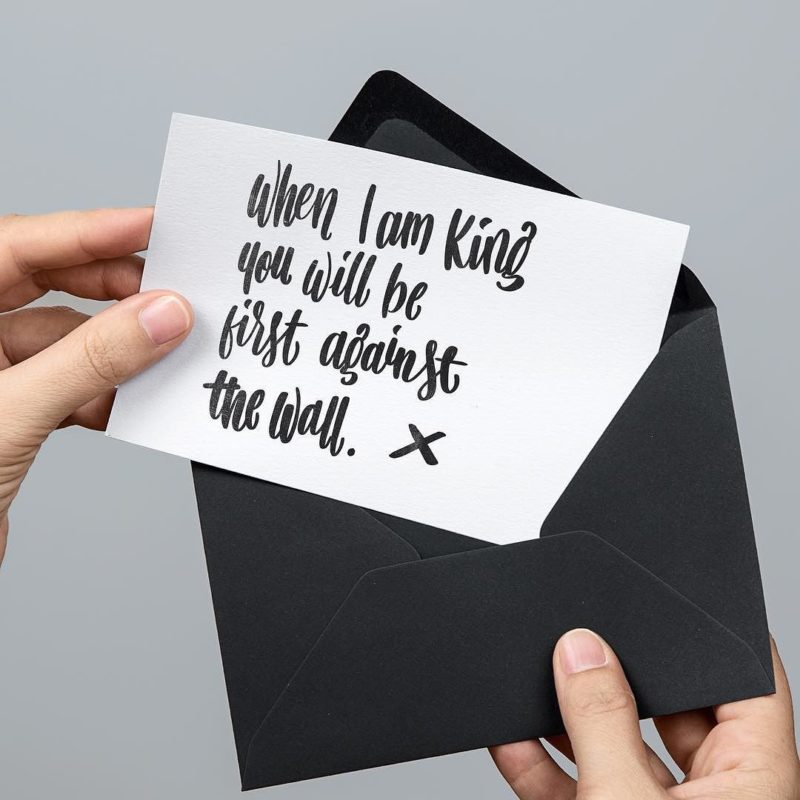 When I am King
you will be
first against
the wall. X